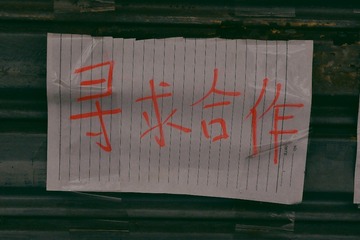 寻求合作